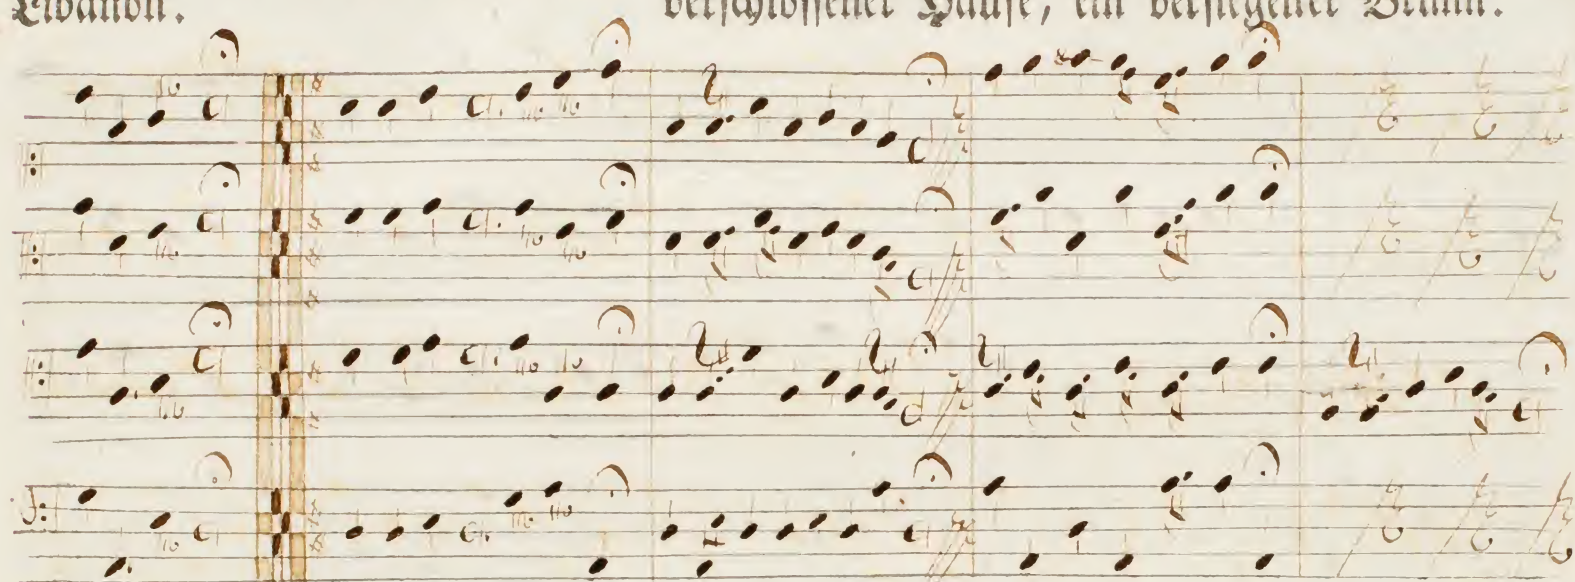 Libanon. verschlossener Hause, ein versiegelter Brunn.